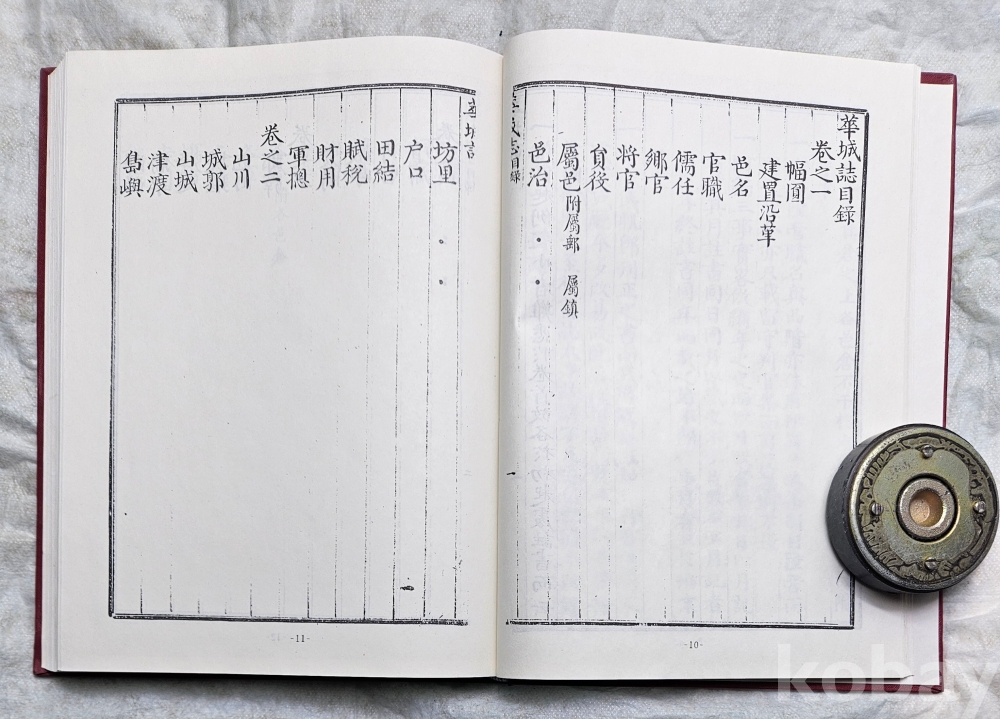 華城誌目録
卷之一
幅圓
建置沿革
邑名
官職
儒任
鄕官
将官
負役
屬邑附屬郵 屬鎮
邑治
華城誌目録
一
-10-
坊里
户口
田結
賦稅
財用
軍摠
卷之二
山川
城郭
山城
津渡
島嶼
-11-
kobay